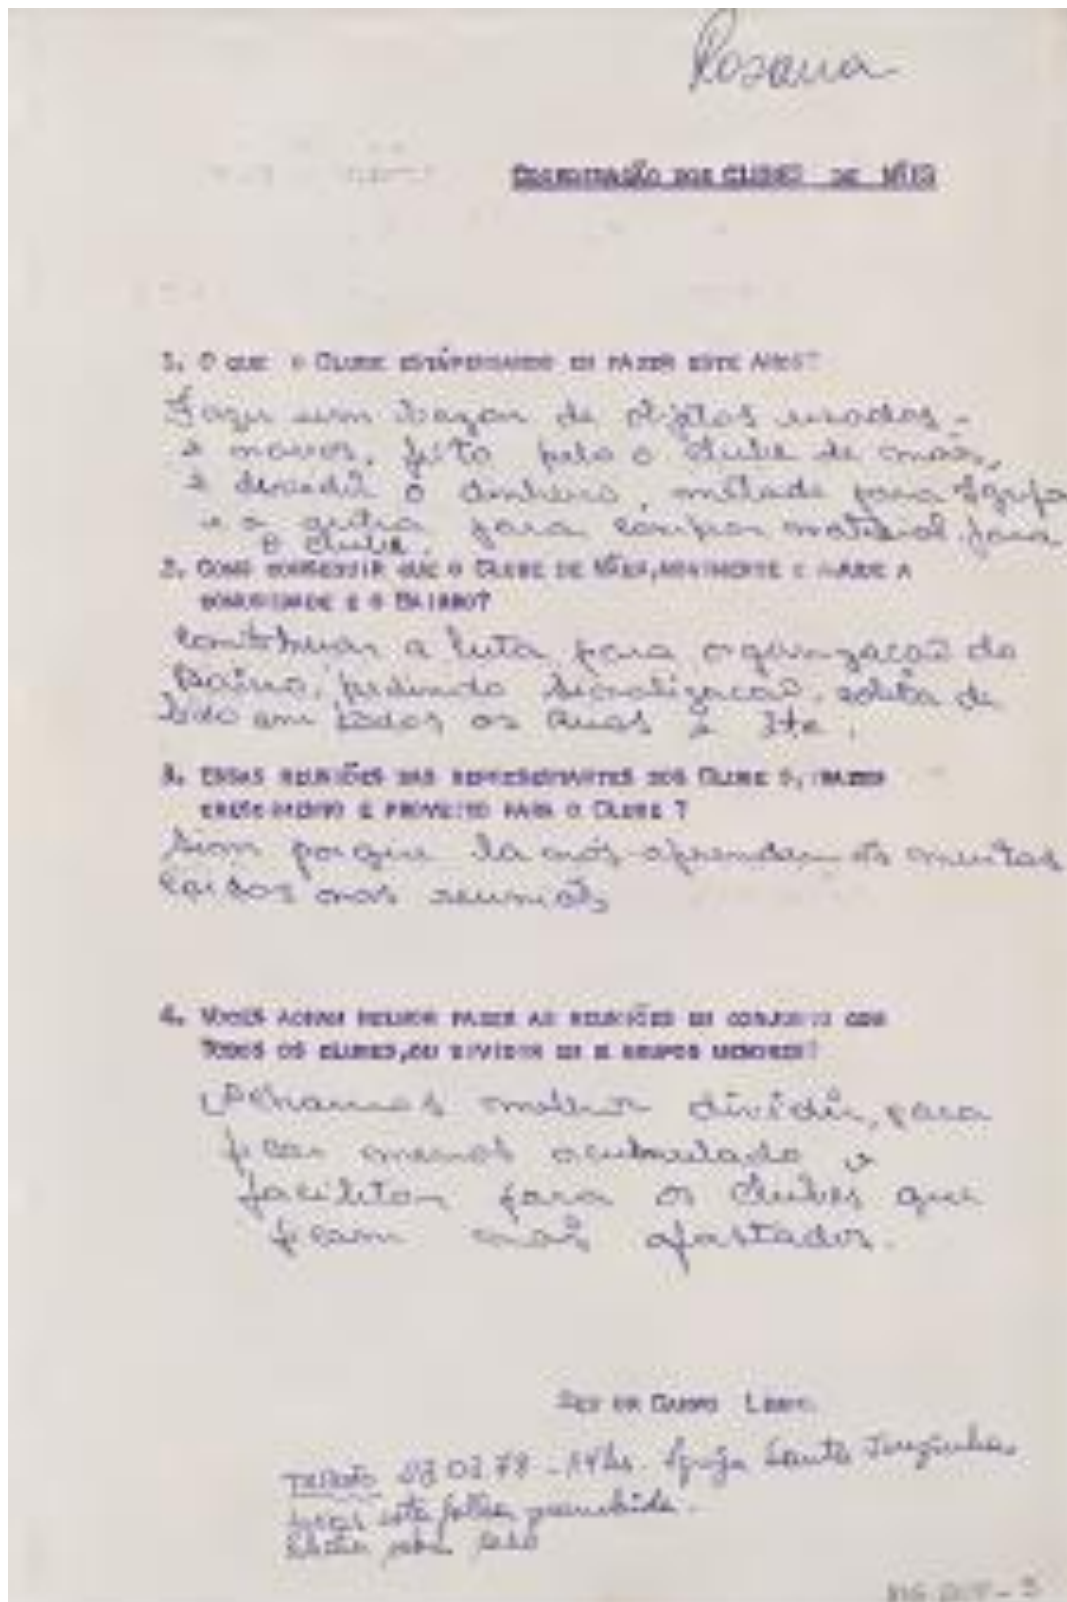 Rosana
COORDENAÇÃO DOS CLUBES DE MÃES
1. O QUE O CLUBE ESTÁ PENSANDO EM FAZER ESTE ANO?
Fazer um bazar de objetos usados -
e novos, feito pelo o clube de mães,
e dividir o dinheiro, metade para Igreja
e a outra para comprar material para
o clube.
2. COMO CONSEGUIR QUE O CLUBE DE MÃES, MOVIMENTE E AJUDE A
COMUNIDADE E O BAIRRO?
Continuar a luta para organização do
Bairro, pedindo sinalização, coleta de
lixo em todas as Ruas e Ete.
3. ESSAS REUNIÕES DAS REPRESENTANTES DOS CLUBE S, TRAZEM
CRESCIMENTO E PROVEITO PARA O CLUBE ?
Sim porque lá nós aprendemos muitas
coisas nas reuniões
4. VOCÊS ACHAM MELHOR FAZER AS REUNIÕES EM CONJUNTO COM
TODOS OS CLUBES, OU DIVIDIR EM GRUPOS MENORES?
Achamos melhor dividir, para
ficar menos acumulado e
facilitar para os clubes que
ficam mais afastados.
CAMPO LIMPO
78 - 14hs. Igreja Santa Terezinha
esta folha preenchida.